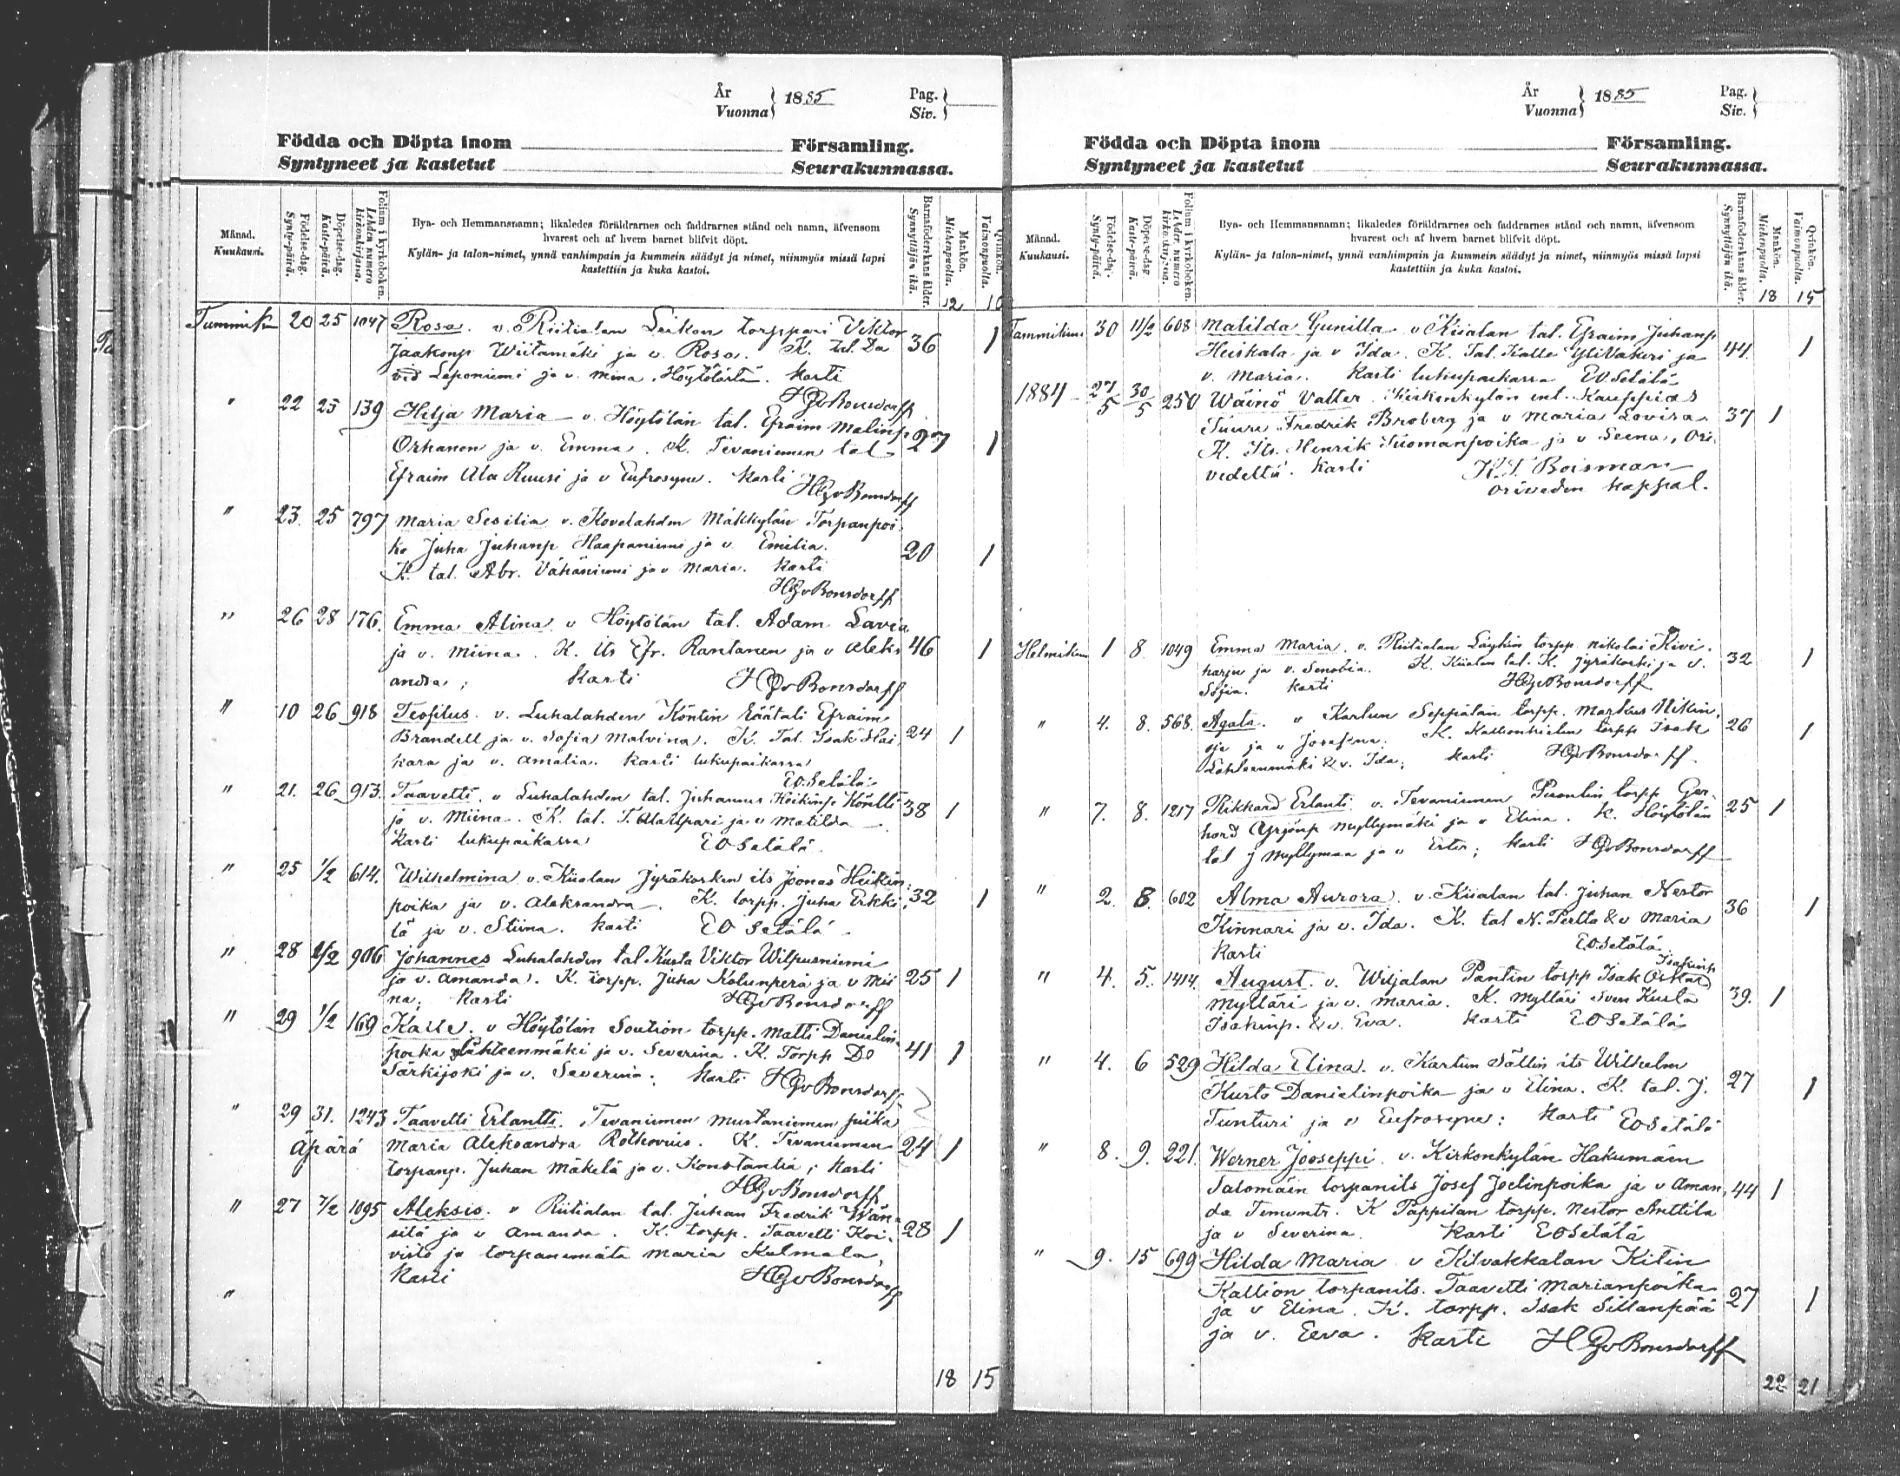 År
Vuonna } 1885
Pag.
Siv. }
Födda och Döpta inom Församling.
Syntyneet ja kastetut Seurakunnassa.
Månad.
Kuukausi.
Födelse-dag.
Synty-päivä.
Döpelse-dag.
Kaste-päivä.
Folium i kyrkoboken.
Lehden numero kirkonkirjassa.
Bya- och Hemmansnamn; likaledes föräldrarnes och faddrarnes stånd och namn, äfvensom
hvarest och af hvem barnet blifvit döpt.
Kylän- ja talon-nimet, ynnä vanhimpain ja kummein säädyt ja nimet, niinmyös missä lapsi
kastettiin ja kuka kastoi.
Barnaföderskans ålder.
Synnyttäjän ikä.
Mankön.
Miehenpuolta.
Qvinkön.
Vaimonpuolta.
12 10
Tammik 20 25 1047 Rosa. v. Riitialan Leikon torppari Viktor
Jaakonp Wiitamäki ja v. Rosa. K. tal. Da 36 1
vid Leponiemi ja v. Mina, Höytölästä. Kasti
HGvBonsdorff
" 22 25 139 Hilja Maria v. Höytölän tal. Efraim Malinp
Orhanen ja v. Emma. K. Tevaniemen tal 27 1
Efraim Ala Ruusi ja v Eufrosyne. Kasti HGvBonsdorff
" 23. 25 797 Maria Sesilia v. Kovelahden Mäkkylän Torpanpoi-
ka Juha Juhanp Haapaniemi ja v. Emilia. 20 1
K. tal. Abr. Vähäniemi ja v Maria. Kasti
HGvBonsdorff
" 26 28 176. Emma Alina v Höytölän tal. Adam Lavia
ja v. Miina. K. Its Efr. Rantanen ja v Aleks 46 1
andra; Kasti HGvBonsdorff
" 10 26 918 Teofilus. v. Luhalahden Köntin Räätäli Efraim
Brandell ja v. Sofia Malvina. K. Tal. Isak Hai 24 1
hara ja v. Amalia. Kasti lukupaikassa
EOSetälä
" 21. 26 913. Taavetti. v Luhalahden tal. Juhannes Heikinp Köntti
ja v. Miina. K. tal. ja v Matilda 38 1
Kasti lukupaikassa EOSetälä.
" 25 1/2 614. Wilhelmina v. Kiialan Jyräkosken its Joonas Heikin-
poika ja v. Aleksandra. K. torpp. Juha Erkki 32 1
lä ja v. Stiina. Kasti EO Setälä
" 28 1/2 906 Johannes Luhalahden tal Kusta Viktor Wilpusniemi
ja v. Amanda. K. torpp. Juha Kolunperä ja v Mii 25 1
na; Kasti HGvBonsdorff
" 29 1/2 169 Kalle. v Höytölän Soution torpp. Matti Danielin-
poika Lähteenmäki ja v. Severina. K. Torpp Do 41 1
Särkijoki ja v. Severina; Kasti HGvBonsdorff
" 29 31. 1243 Taavetti Erlantti. Tevaniemen Mustaniemen piika
Äpärä Maria Aleksandra Rothovius. K. Tevaniemen 24 1
torpanp. Juhan Mäkelä ja v. Konstantia; Kasti
HGvBonsdorff
" 27 7/2 1095 Aleksis. v Riitialan tal. Juhan Fredrik Wän-
silä ja v Amanda. K. torpp. Taavetti Koi- 28 1
visto ja torpanemäntä Maria Kulmala,
Kasti HGvBonsdorff
"
18 15
År
Vuonna } 1885
Pag.
Siv. }
Födda och Döpta inom Församling.
Syntyneet ja kastetut Seurakunnassa.
Månad.
Kuukausi.
Födelse-dag.
Synty-päivä.
Döpelse-dag.
Kaste-päivä.
Folium i kyrkoboken.
Lehden numero kirkonkirjassa.
Bya- och Hemmansnamn; likaledes föräldrarnes och faddrarnes stånd och namn, äfvensom
hvarest och af hvem barnet blifvit döpt.
Kylän- ja talon-nimet, ynnä vanhimpain ja kummein säädyt ja nimet, niinmyös missä lapsi
kastettiin ja kuka kastoi.
Barnaföderskans ålder.
Synnyttäjän ikä.
Mankön.
Miehenpuolta.
Qvinkön.
Vaimonpuolta.
18 15
Tammikuu 30 11/2 608 Matilda Gunilla v Kiialan tal. Efraim Juhanp
Heiskala ja v Ida. K. Tal. Kalle Ylivakeri ja 44 1
v. Maria. Kasti lukupaikassa EOSetälä
1884 27/5 30/5 250 Wäinö Valter. Kirkonkylän ent. Kauppias
Tuure Fredrik Broberg ja v Maria Lovisa 37 1
K. Its. Henrik Tuomanpoika ja v Seena, Ori-
vedeltä. Kasti K.T. Boisman
Oriveden kappal.
Helmikuu 1 8 1049 Emma Maria. v. Riitialan Läykin torpp. Nikolai Kivi-
harju ja v. Senobia. K. Kiialan tal. K. Jyräkoski ja v. 32 1
Sofia. Kasti HGvBonsdorff
" 4. 8. 568. Agata. v Karhun Seppälän torpp. Markus Nikin
oja ja v Josefina. K. Kallionkielen torpp Isak 26 1
Lähteenmäki & v. Ida; Kasti HGvBonsdorff
" 7. 8. 1217 Rikkard Erlanti v. Tevaniemen torpp Ger-
hard Yrjönp Myllymäki ja v Elina. K. Höytölän 25 1
tal J Myllymaa ja v Ester; Kasti HGvBonsdorff
" 2. 8. 602 Alma Aurora. v. Kiialan tal. Juhan Nestor
Kinnari ja v. Ida. K. tal N. Perttu & v Maria 36 1
Kasti EOSetälä.
" 4. 5. 1414. August. v. Wiljalan Pantin torpp Isak Oskar Isakinp
Mylläri ja v. Maria. K. Mylläri Sven Kusta 39. 1
Isakinp. & v. Eva. Kasti EOSetälä
" 4. 6 529 Hilda Elina. v. Karhun Sällin its Wilhelm
Kusto Danielinpoika ja v Elina. K. tal. J. 27 1
Tunturi ja v Eufrosyne: Kasti EOSetälä
" 8. 9. 221. Werner Jooseppi v. Kirkonkylän Hakumäen
Salomäin torpanits Josef Joelinpoika ja v Aman- 44 1
da Temunt. K Pappilan torpp. Nestor Anttila
ja v Severina. Kasti EOSetälä
" 9. 15 699 Hilda Maria v Kilvakkalan Kitin
Kallion torpanits. Taavetti Marianpoika
ja v Elina. K. torpp. Isak Sillanpää 27 1
ja v. Eeva. Kasti HGvBonsdorff
22 21